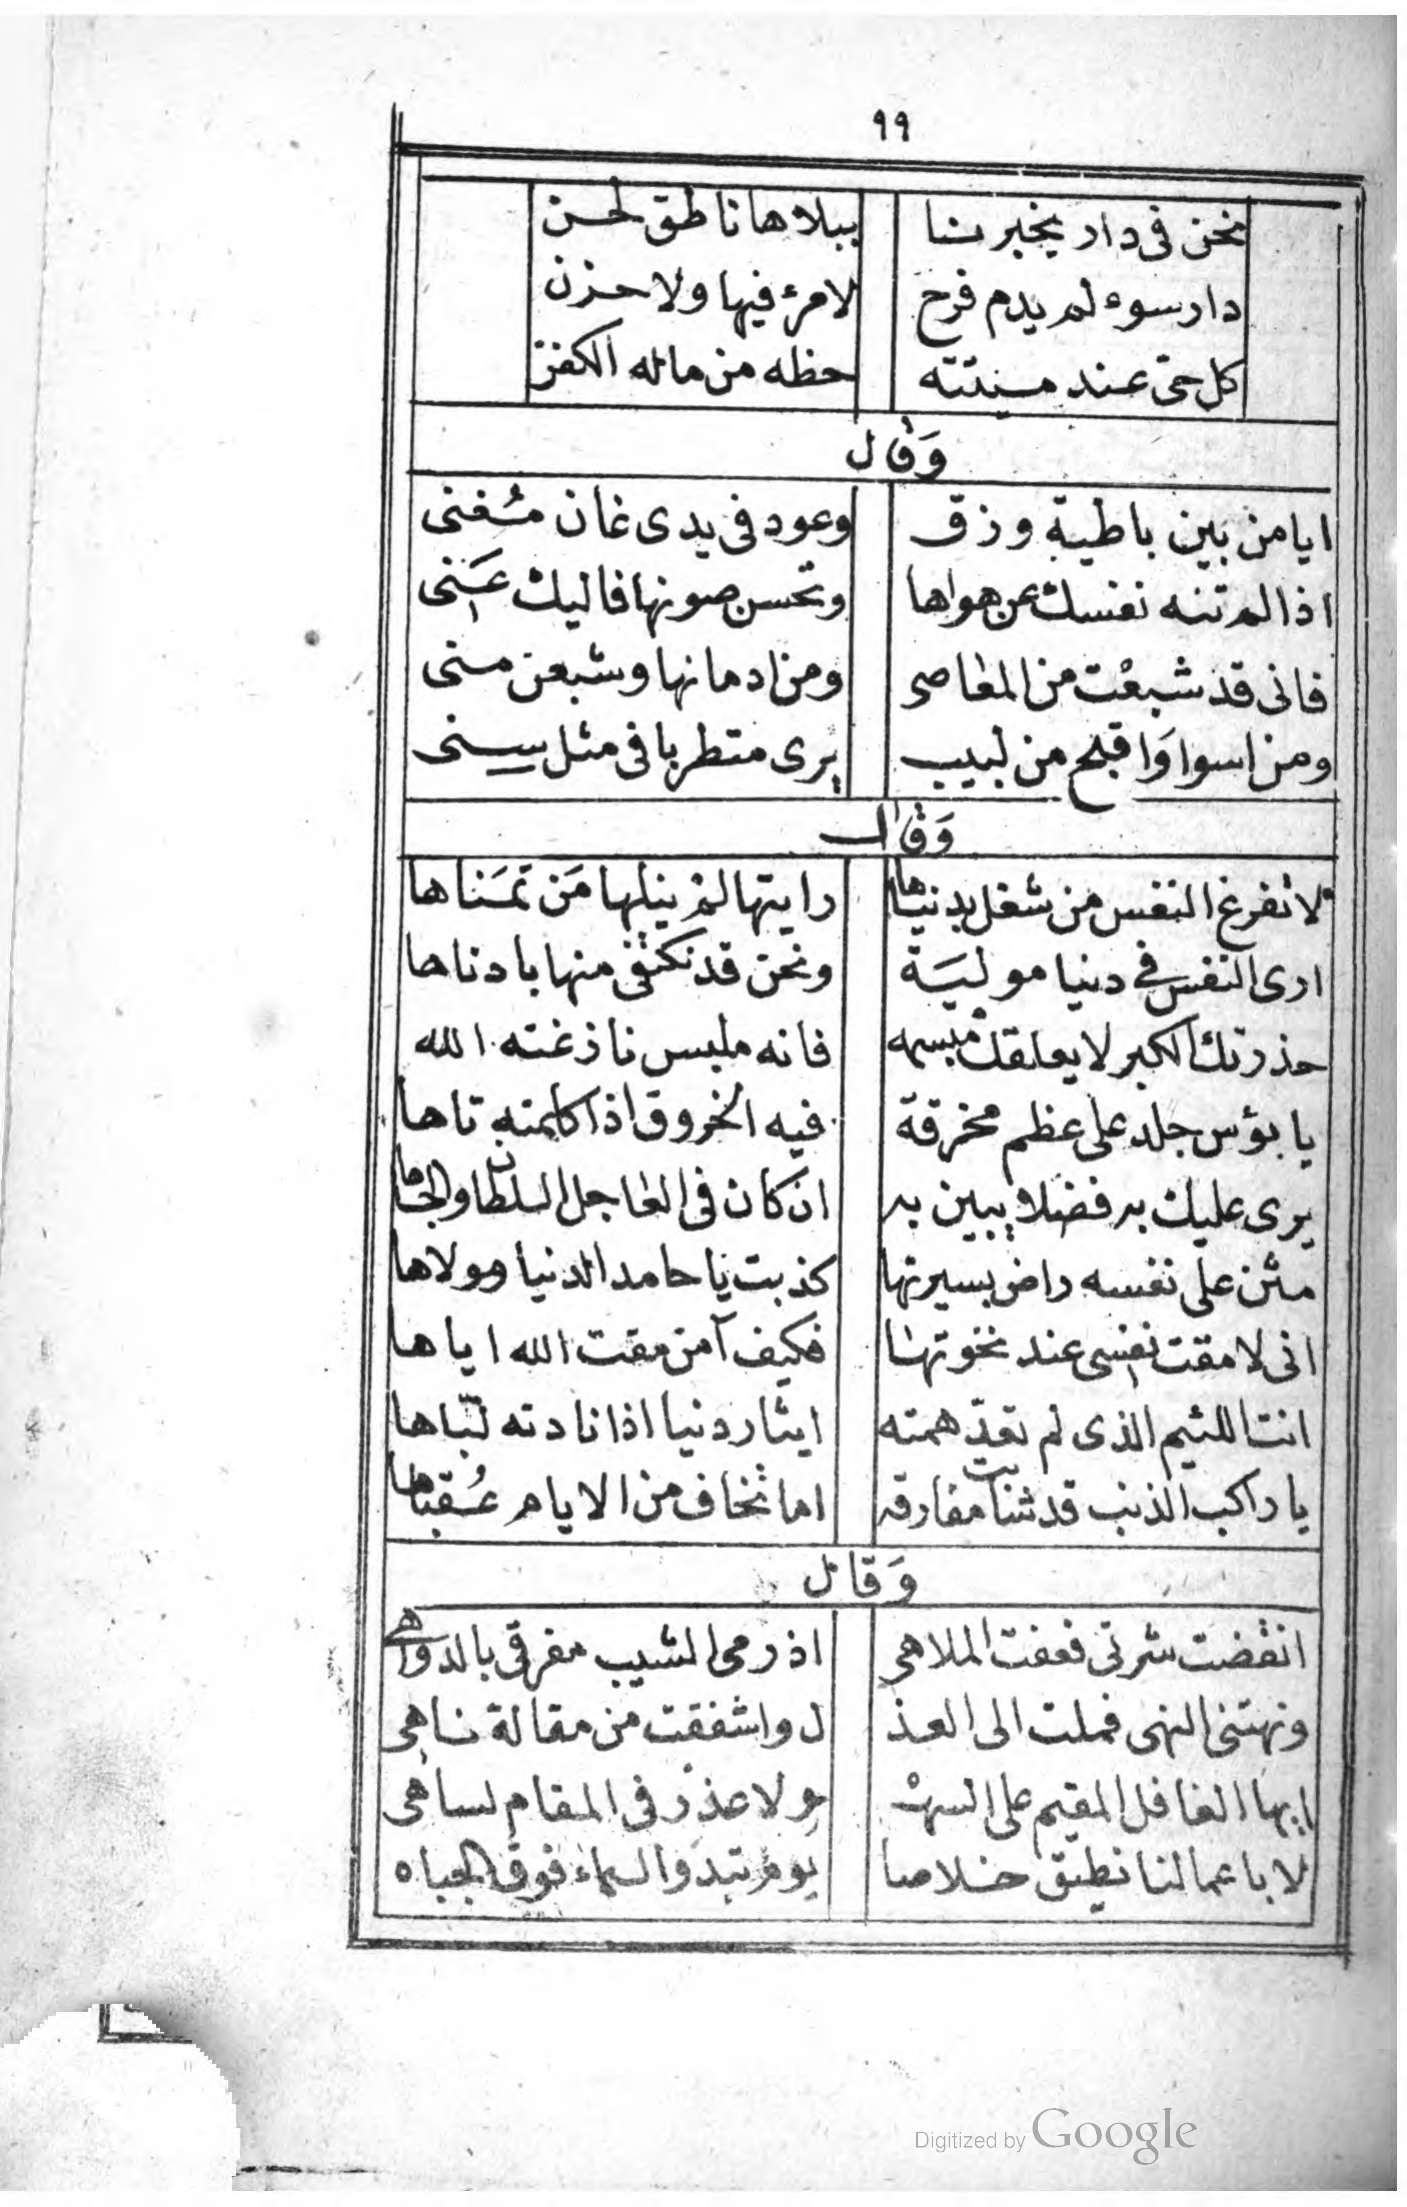 ٩٩
نحن فى دار يخبرنا ببلاها ناطق لحسن
دار سوء لم يدم فرح لامرء فيها ولا حزن
كل حى عند ميتته حظه من ماله الكفن
وَقال
ايا من بين باطية وزق وعود فى يدى غان مُغنى
اذا لم تنه نفسك عن هواها وتحسن صونها فاليك عَنى
فانى قد شبعت من المعاصى ومن ادمانها وشبعن منى
ومن اسوا وَاقبح من لبيب يرى متطربا فى مثل سِنى
وَقال
لا تفرغ النفس من شغل بدنياها رايتها لم ينلها مَن تمَناها
ارى النفس فى دنيا موليَة ونحن قد نكتفى منها بادناها
حذرتك الكبر لا يعلقك مبسمه فانه ملبس نازغته الله
يا بؤس جلد على عظم مخرقة فيه الخروق اذا كلمته تاها
يرى عليك به فضلا يبين به ان كان فى العاجل السلطان والجاها
مثن على نفسه راض بسيرتها كذبت يا حامد الدنيا ومولاها
انى لامقت نفسى عند نخوتها فكيف آمن مقت الله اياها
انت اللئيم الذى لم تعدّ همته ايثار دنيا اذا نادته لبّاها
يا راكب الذنب قد شابت مفارقه اما تخاف من الايام عُقباها
وَقال
انقضت شرتى فعفت الملاهى اذ رمى الشيب مفرقى بالدواهى
ونهتنى النهى فملت الى العذ ل واشفقت من مقالة ناهى
ايها الغافل المقيم على السهْ و ولا عذر فى المقام لساهى
لا باعمالنا نطيق خلاصا يوم تبدو السماء فوق الجباه
Digitized by Google